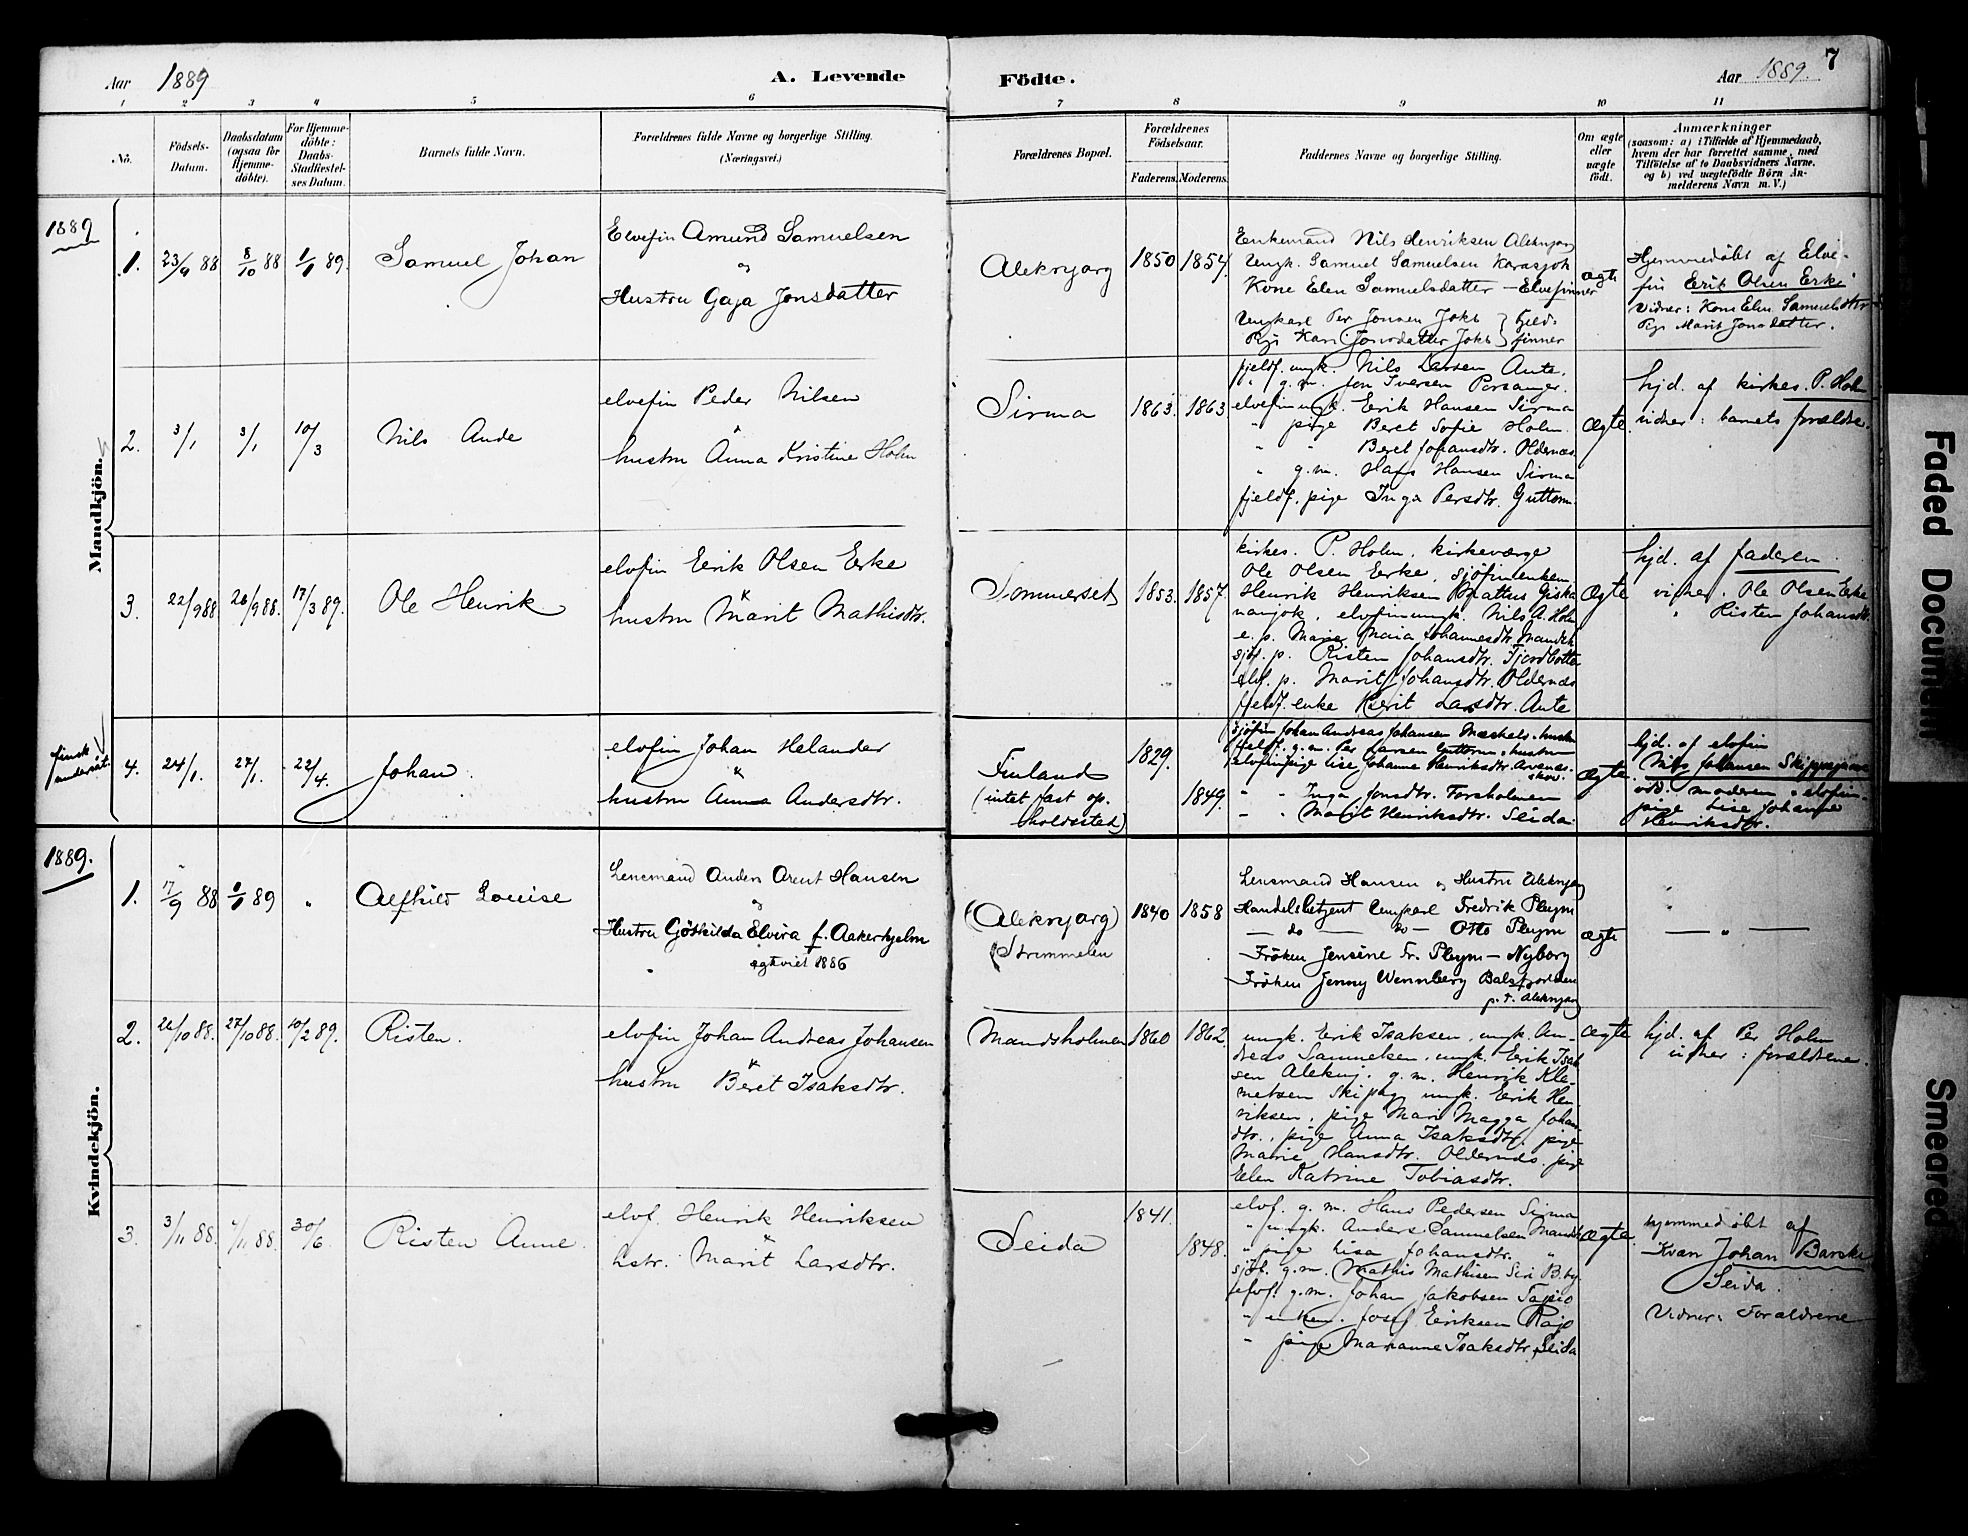 Aar 1889
A. Levende
Födte.
Aar 1889.
7
1 2 3 4 5 6 7 8 9 10 11
No.
Födsels-
Datum.
Daabsdatum
(ogsaa for
Hjemme-
döbte).
For Hjemme-
döbte:
Daabs-
Stadfæstel-
ses Datum.
Barnets fulde Navn.
Forældrenes fulde Navne og borgerlige Stilling.
(Næringsvei.)
Forældrenes Bopæl.
Forældrenes
Födselsaar.
Faderens. Moderens.
Faddernes Navne og borgerlige Stilling.
Om ægte
eller
uægte
födt.
Anmærkninger
(saasom: a) i Tilfælde af Hjemmedaab,
hvem der har forrettet samme, med
Tilföielse af to Daabsvidners Navne,
og b) ved uægtefödte Börn An-
melderens Navn m. V.)
1889
Mandkjön.
1. 23/9 88 8/10 88 1/1 89. Samuel Johan
Elvefin Amund Samuelsen
og
Hustru Gaja Jonsdatter
Aleknjarg
1850 1854.
Enkemand Nils Henriksen Aleknjarg
Ungk. Samuel Samuelsen Karasjok
Kone Elen Samuelsdatter — Elvefinner
Ungkarl Per Jonsen Joks } Fjeld-
Pige Kari Jonsdatter Joks } finner
ægte
Hjemmedöbt af Elve-
fin Erik Olsen Erke
Vidner: Kone Elen Samuelsdtr
Pige Marit Jonsdatter.
2. 3/1 3/1 10/3 Nils Ande
elvefin Peder Nilsen
&
hustru Anna Kristine Holm
Sirma
1863. 1863
fjeldf. ungk. Nils Larsen Aute.
" g.m. Jon Iversen Porsanger.
elvefin ungk. Erik Hansen Sirma
" pige Beret Sofie Holm
" " Beret Johansdtr. Oldernæs
" g.m. Hans Hansen Sirma
fjeldf. pige Inga Persdtr. Guttorm.
Ægte
hjd. af kirkes. P. Holm
vidner: barnets forældre.
3. 22/9 88 26/9 88. 17/3 89. Ole Henrik
elvfin Erik Olsen Erke
&
hustru Marit Mathisdtr.
Sommerset
1853. 1857.
kirkes. P. Holm, kirkeværge
Ole Olsen Erke, sjöfin enkem.
Henrik Henriksen Mattus Giska
nanjok, elvefin ungk. Nils A. Holm
e. p. Maria Johannesdtr. Mandsh
sjöf. p. Risten Johansdtr. Fjordbotten
elvf. p. Marit Johansdtr. Oldernæs
fjeldf. enke Kirit Larsdtr. Aute
Ægte
hjd. af faderen
vidner. Ole Olsen Erke
" Risten Johansdtr.
finsk
undersåt.
4. 24/1. 27/1. 22/4. Johan
elvfin Johan Helander
&
hustru Anna Andersdtr.
Finland
(intet fast op-
holdssted)
1829.
1849.
sjöfin Johan Andreas Johansen Mæskels. hustru
fjeldf. g.m. Per Larsen Guttorm. hustru
elvefin pige Lise Johanne Henriksdtr. Avenes-
skov.
" " Inga Jonsdtr. Forsholmen
" . Marit Henriksdtr. Seida.
Ægte
hjd. af elvfin
Nils Johansen Skipagurra
vid. moderen & elvfin-
pige Lise Johanne
Henriksdtr.
1889.
Kvindekjön.
1. 17/9 88 1/1 89 " Alfhild Louise
Lensmand Anders Arent Hansen
og
Hustru Göthilda Elvira f. Aakerhjelm
ægteviet 1886
(Aleknjarg)
Strimmelen
1840 1858
Lensmand Hansen og Hustru Aleknjarg
Handelsbetjent Ungkarl Fredrik Pleym
— do — do — Otto Pleym
Fröken Jensine Fr. Pleym — Nyborg
Fröken Jenny Wennberg Balsfjorden
p. t. Aleknjarg
ægte
— " —
2. 24/10 88. 27/10 88. 10/2 89. Risten.
elvfin Johan Andreas Johansen
&
hustru Beret Isaksdtr.
Mandsholmen
1860 1862.
ungk. Erik Isaksen, ungk. An-
dreas Samuelsen, ungk. Erik Isak
sen Aleknj. g.m. Henrik Kle-
metsen Skipag. ungk. Erik Hen-
riksen, pige Mari Magga Johan
dtr., pige Anna Isaksdtr. pige
Marie Hansdtr. Oldernæs. pige
Elen Katrine Tobiasdtr.
Ægte
hjd. af Per Holm
vidner: forældrene.
3. 3/11 88. 7/11 88. 30/6 Risten Anne.
elvf. Henrik Henriksen
&
hstr. Marit Larsdtr.
Seida
1841.
1848.
elvf. g. m. Hans Pedersen Sirma
" ungk. Anders Samuelsen Mandsh
" pige Lisa Johansdtr. "
sjöf. g.m. Mathis Mathisen Siri B.by.
elvf. g.m. Johan Jakobsen Tapio
" enkem. Josef Eriksen Rajo
" pige Marianne Isaksdtr. Seida
Ægte.
hjemmedöbt af
Kvæn Johan Barske
Seida.
Vidner: Forældrene
Faded Document
Smeared